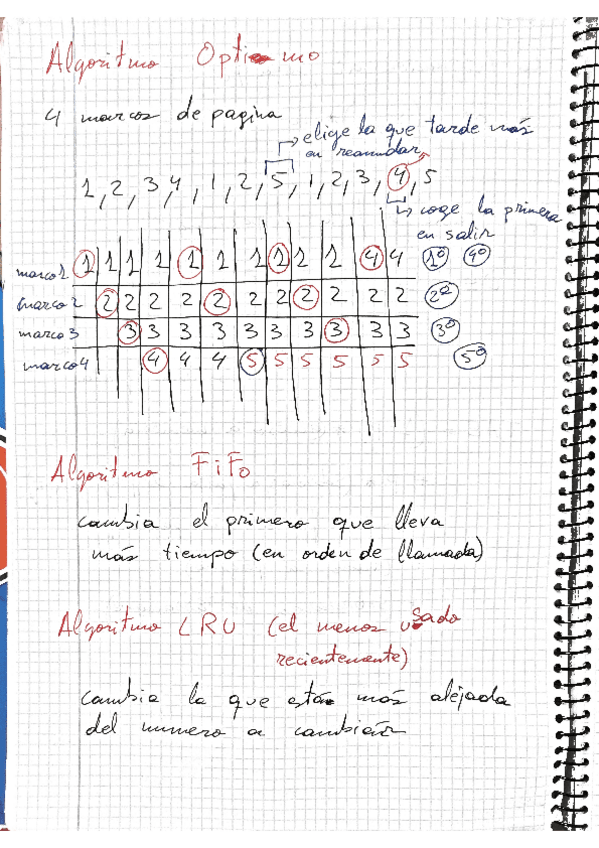 Algoritmo Optimo
4 marcos de pagina
elige la que tarde más
en reanudar
1, 2, 3, 4, 1, 2, 5, 1, 2, 3, 4, 5
coge la primera
en salir
marco 1 1 1 1 1 1 1 1 1 1 1 4 4 1º 4º
marco 2 2 2 2 2 2 2 2 2 2 2 2 2º
marco 3 3 3 3 3 3 3 3 3 3 3 3º
marco 4 4 4 4 5 5 5 5 5 5 5º
Algoritmo FiFo
cambia el primero que lleva
más tiempo (en orden de llamada)
Algoritmo LRU (el menos usado
recientemente)
cambia la que está más alejada
del numero a cambiar